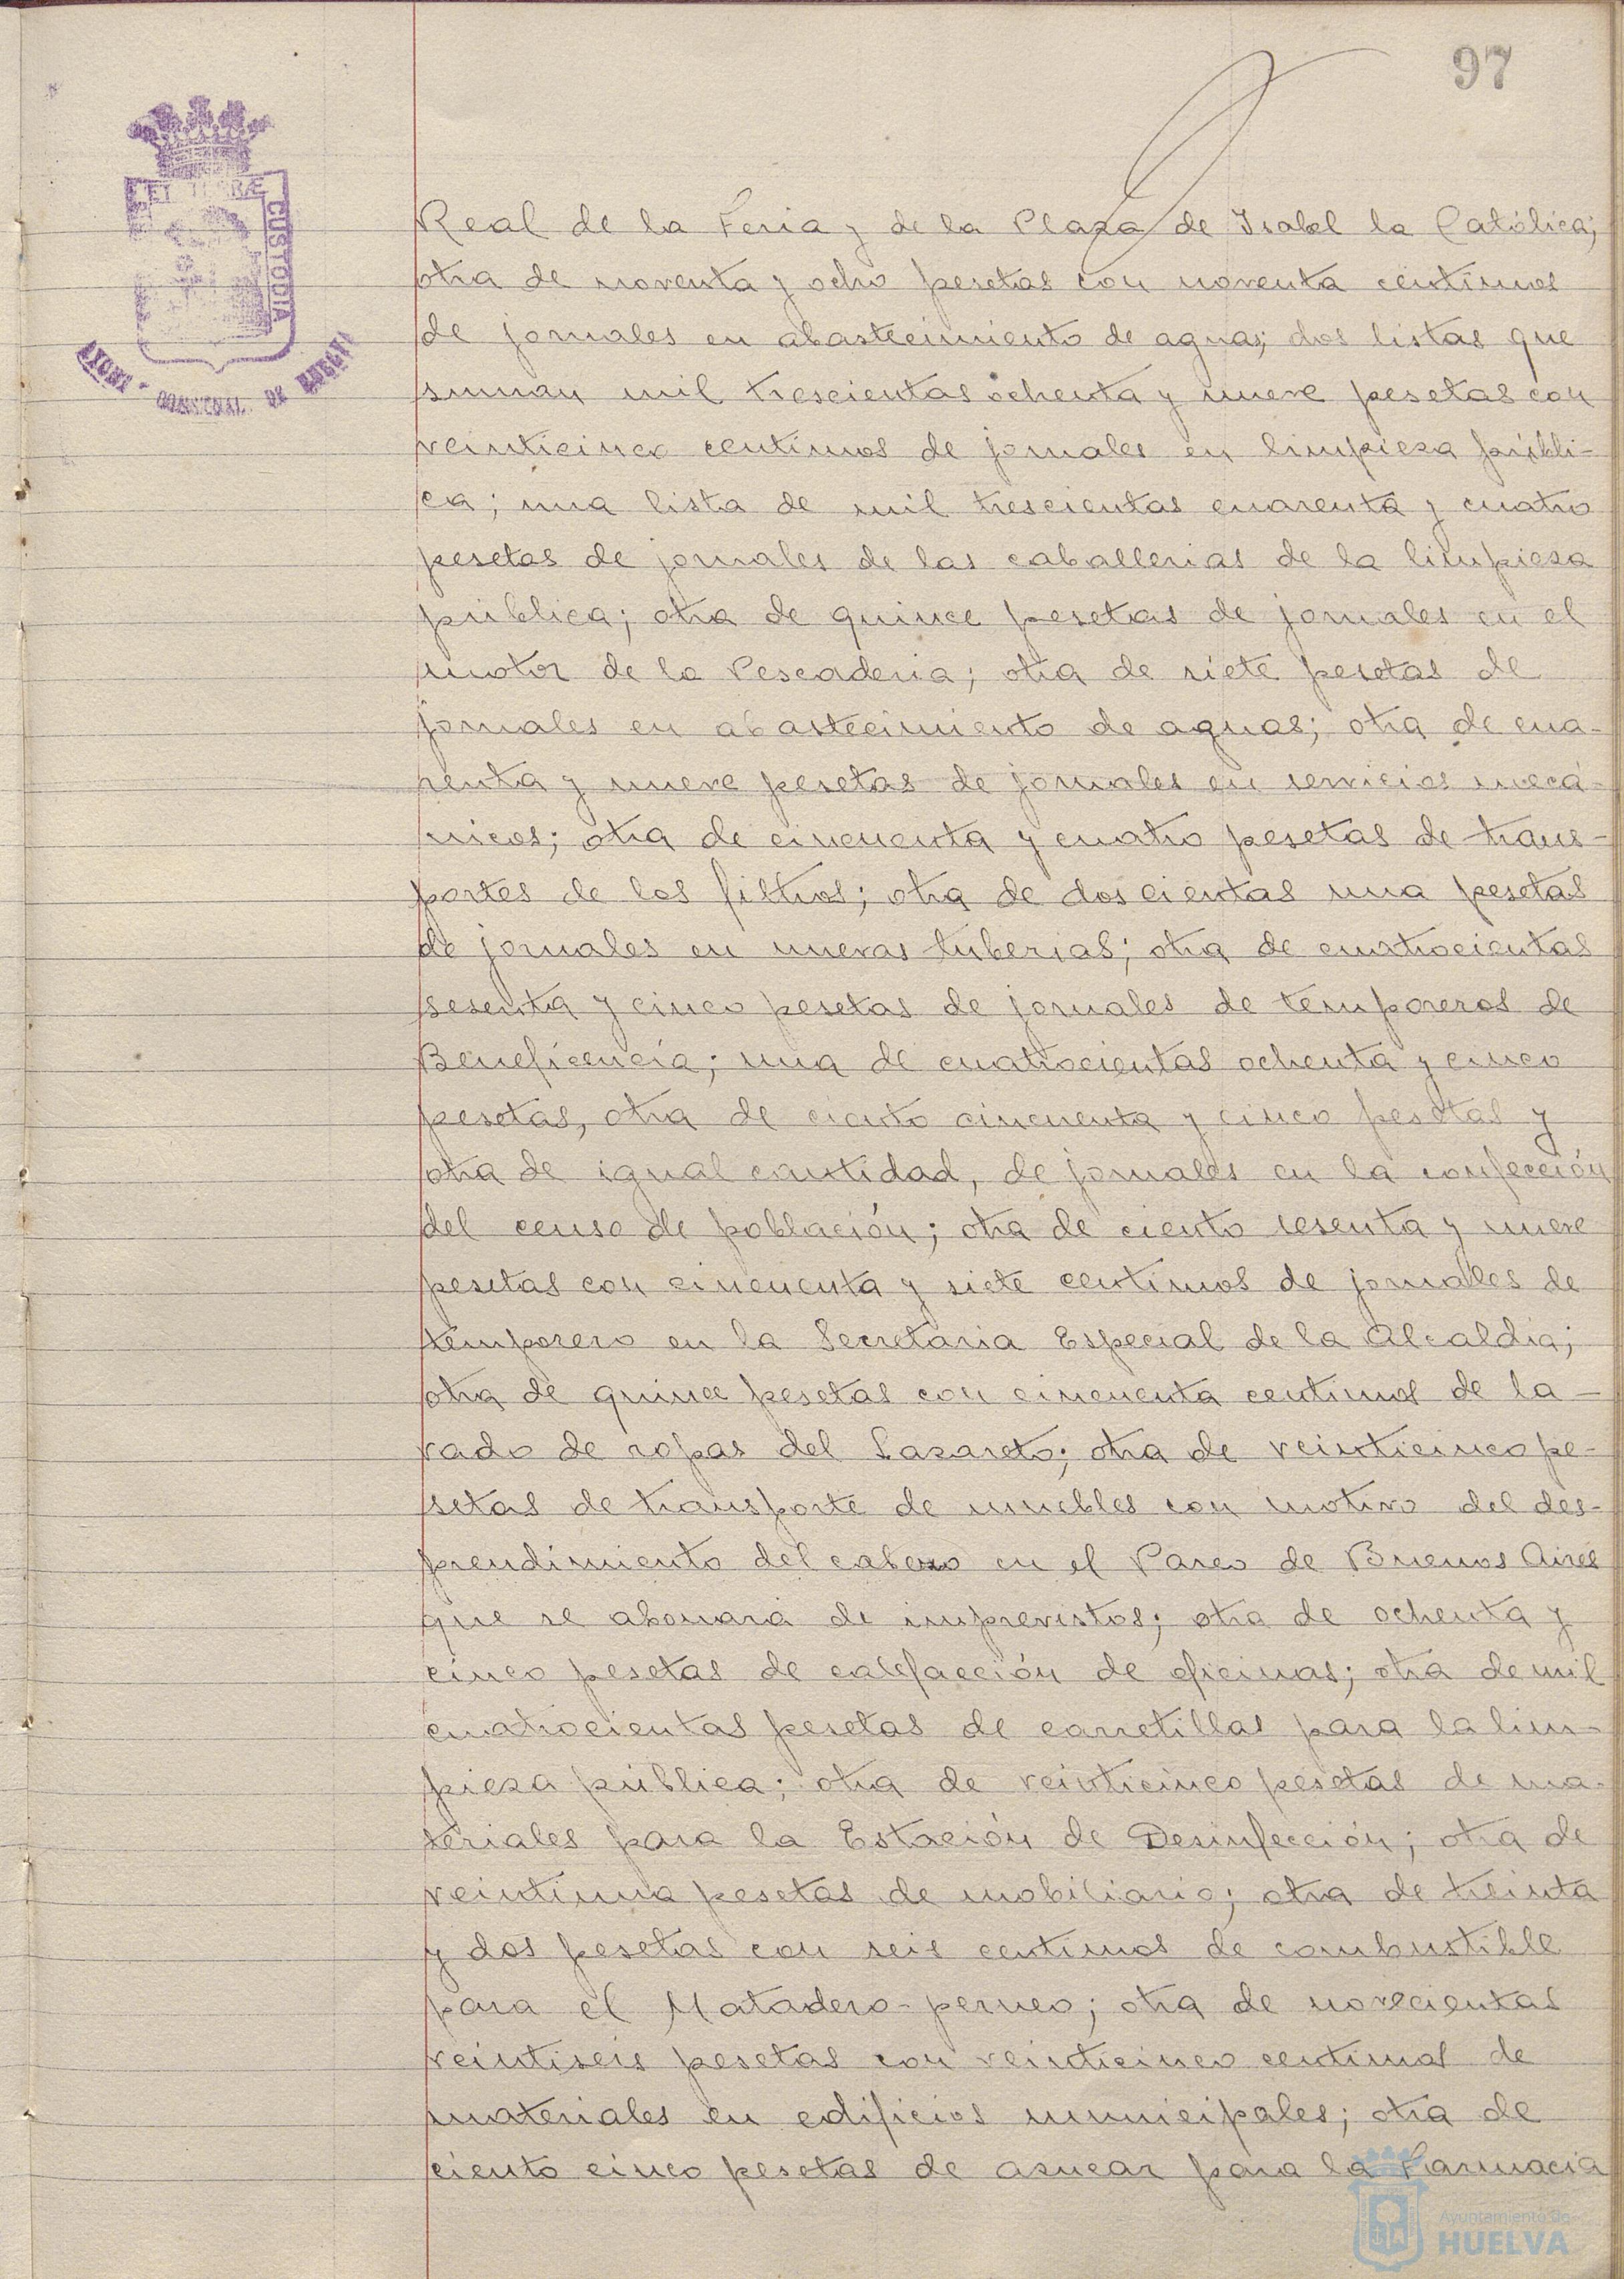 97
ET TERRÆ
CUSTODIA
DE HUELVA
Real de la Feria y de la Plaza de Isabel la Católica;
otra de noventa y ocho pesetas con noventa centimos
de jornales en abastecimiento de aguas; dos listas que
suman mil trescientas ochenta y nueve pesetas con
veinticinco centimos de jornales en limpieza públi-
ca; una lista de mil trescientas cuarenta y cuatro
pesetas de jornales de las caballerias de la limpieza
pública; otra de quince pesetas de jornales en el
motor de la Pescaderia; otra de siete pesetas de
jornales en abastecimiento de aguas; otra de cua-
renta y nueve pesetas de jornales en servicios mecá-
nicos; otra de cincuenta y cuatro pesetas de trans-
portes de los filtros; otra de doscientas una pesetas
de jornales en nuevas tuberias; otra de cuatrocientas
sesenta y cinco pesetas de jornales de temporeros de
Beneficencia; una de cuatrocientas ochenta y cinco
pesetas, otra de ciento cincuenta y cinco pesetas y
otra de igual cantidad, de jornales en la confección
del censo de población; otra de ciento sesenta y nueve
pesetas con cincuenta y siete centimos de jornales de
temporero en la Secretaria Especial de la Alcaldia;
otra de quince pesetas con cincuenta centimos de la-
vado de ropas del Lazareto; otra de veinticinco pe-
setas de transporte de muebles con motivo del des-
prendimiento del cabezo en el Paseo de Buenos Aires
que se abonará de imprevistos; otra de ochenta y
cinco pesetas de calefacción de oficinas; otra de mil
cuatrocientas pesetas de carretillas para la lim-
pieza pública; otra de veinticinco pesetas de ma-
teriales para la Estación de Desinfección; otra de
veintiuna pesetas de mobiliario; otra de treinta
y dos pesetas con seis centimos de combustible
para el Matadero-perneo; otra de novecientas
veintiseis pesetas con veinticinco centimos de
materiales en edificios municipales; otra de
ciento cinco pesetas de azucar para la Farmacia
Ayuntamiento de
HUELVA